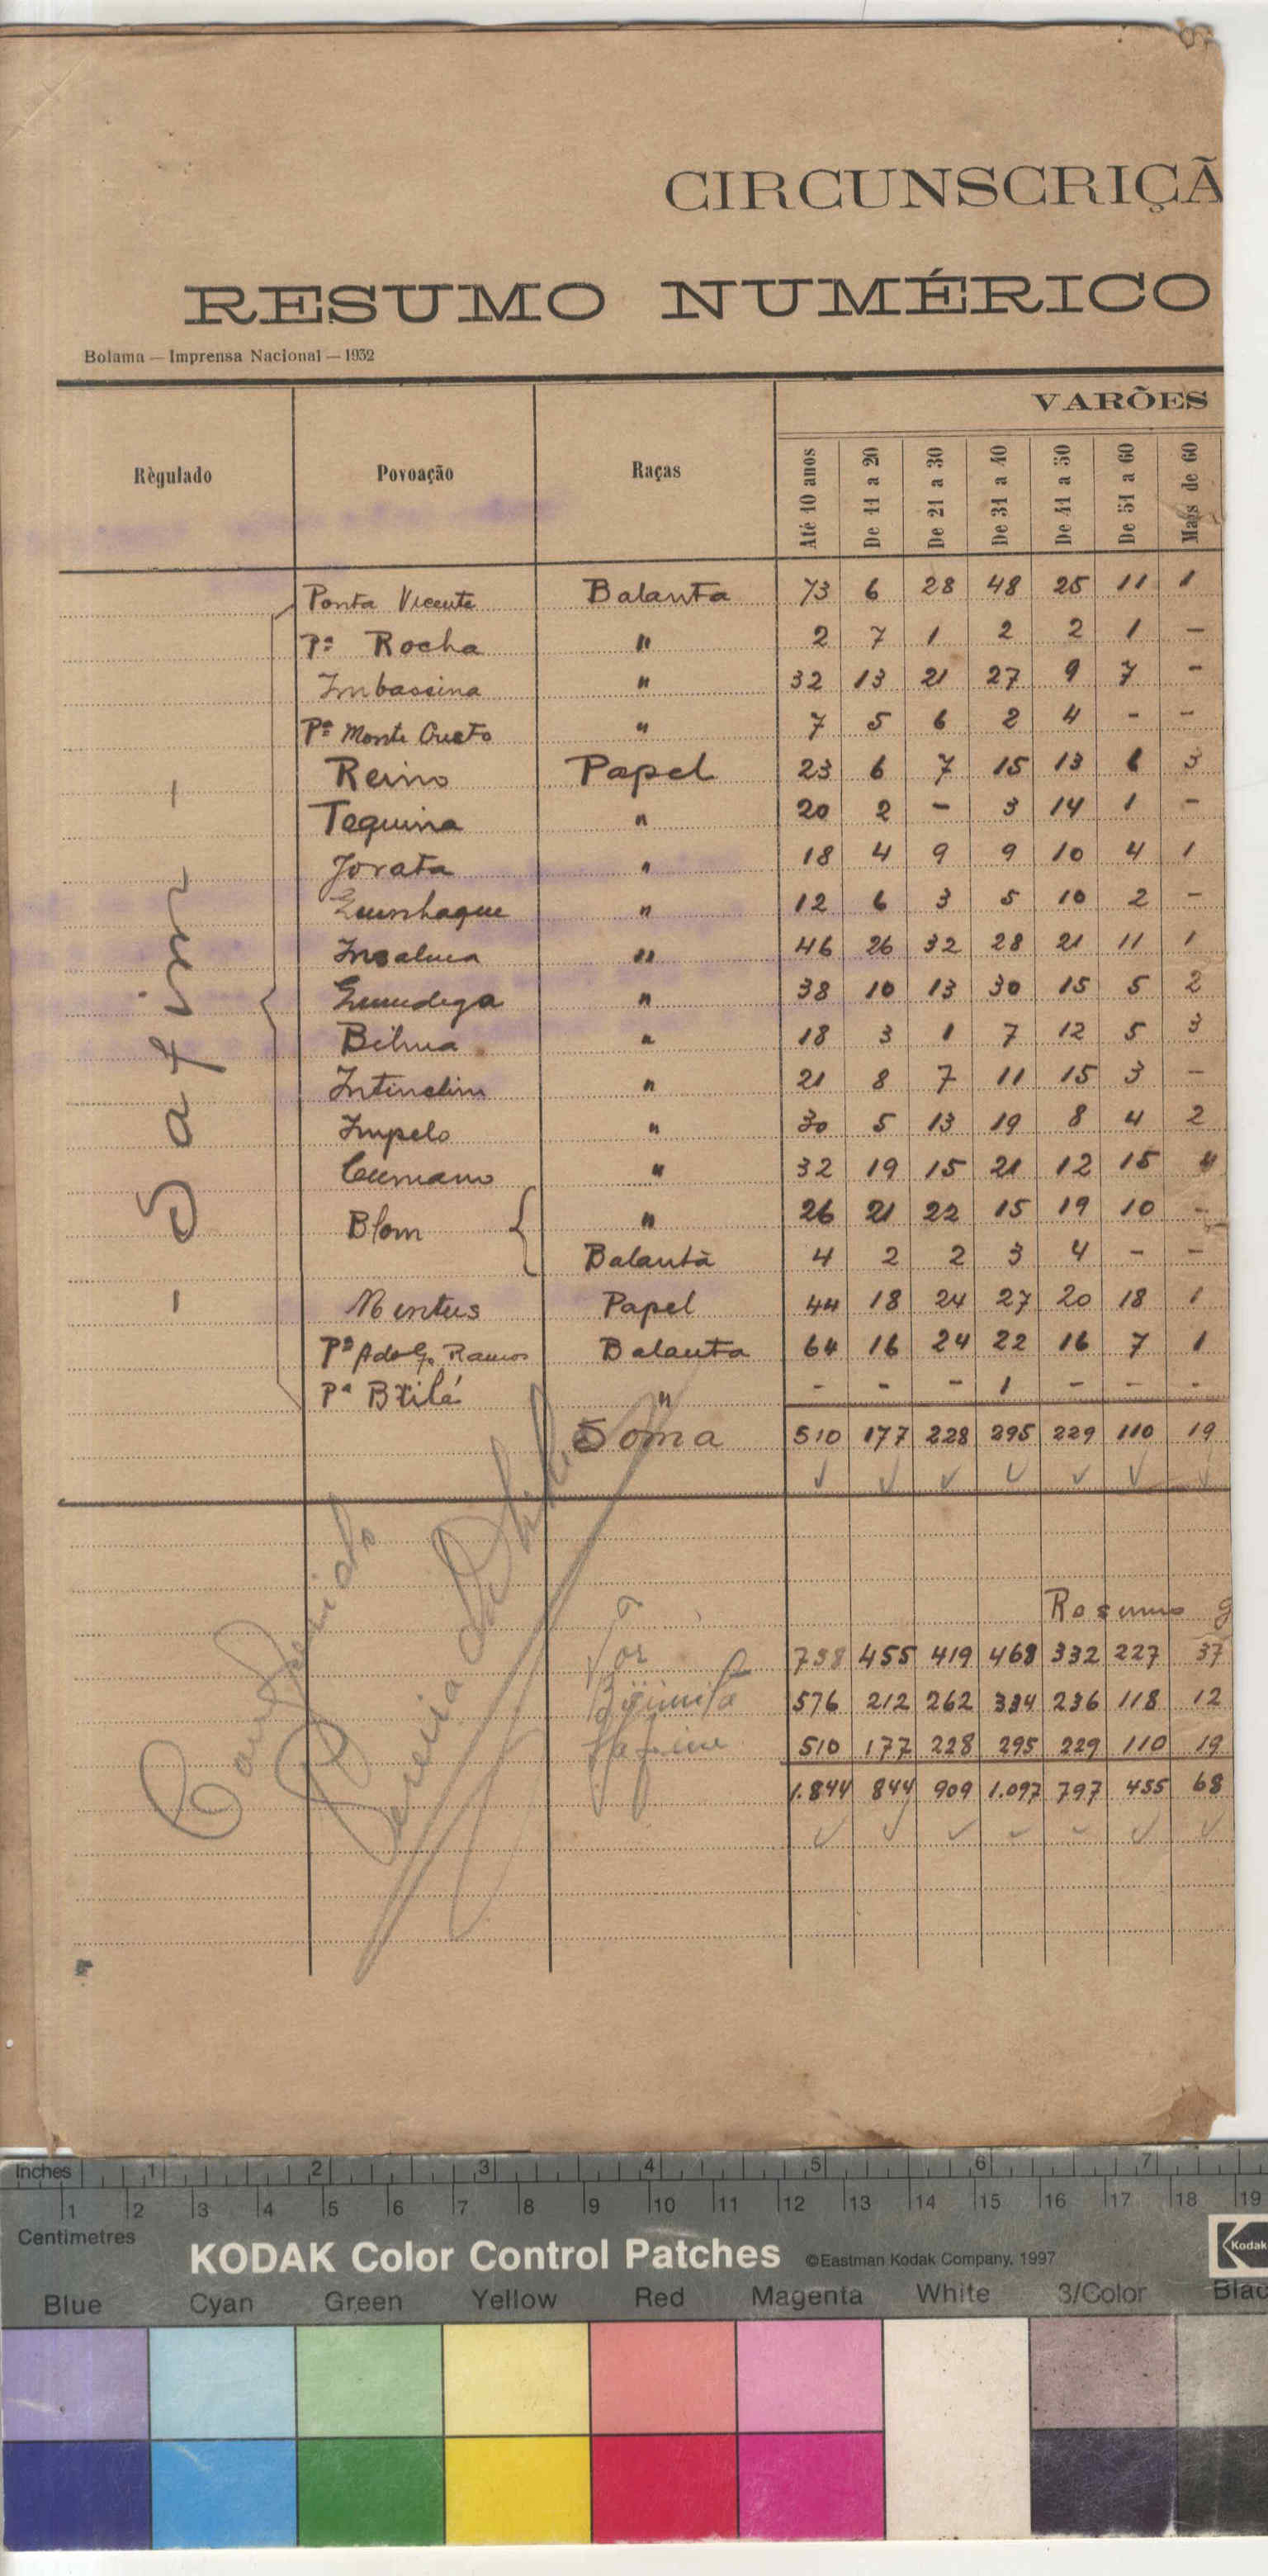 CIRCUNSCRIÇÃ
RESUMO NUMÉRICO
Bolama — Imprensa Nacional — 1932
VARÕES
Règulado Povoação Raças Até 10 anos De 11 a 20 De 21 a 30 De 31 a 40 De 41 a 50 De 51 a 60 Mais de 60
- Safim -
Ponta Vicente Balanta 73 6 28 48 25 11 1
Pª Rocha " 2 7 1 2 2 1 -
Imbassina " 32 13 21 27 9 7 -
Pª Monte Cristo " 7 5 6 2 4 - -
Reino Papel 23 6 7 15 13 6 3
Tequina " 20 2 - 3 14 1 -
Jorata " 18 4 9 9 10 4 1
Quinhaque " 12 6 3 5 10 2 -
Insalma " 46 26 32 28 21 11 1
38 10 13 30 15 5 2
Bilma " 18 3 1 7 12 5 3
Intinelim " 21 8 7 11 15 3 -
Impelo " 30 5 13 19 8 4 2
Cumano " 32 19 15 21 12 15 4
Blom { " 26 21 22 15 19 10 -
Balantà 4 2 2 3 4 - -
Papel 44 18 24 27 20 18 1
Pª Adolfo Ramos Balanta 64 16 24 22 16 7 1
Pª Brilé " - - - 1 - - -
Soma 510 177 228 295 229 110 19
Resumo g
Tor 758 455 419 468 332 227 37
Bijimita 576 212 262 334 236 118 12
Safim 510 177 228 295 229 110 19
1.844 844 909 1.097 797 455 68
Inches 1 2 3 4 5 6 7
1 2 3 4 5 6 7 8 9 10 11 12 13 14 15 16 17 18 19
Centimetres
KODAK Color Control Patches ©Eastman Kodak Company, 1997 Kodak
Blue Cyan Green Yellow Red Magenta White 3/Color Blac